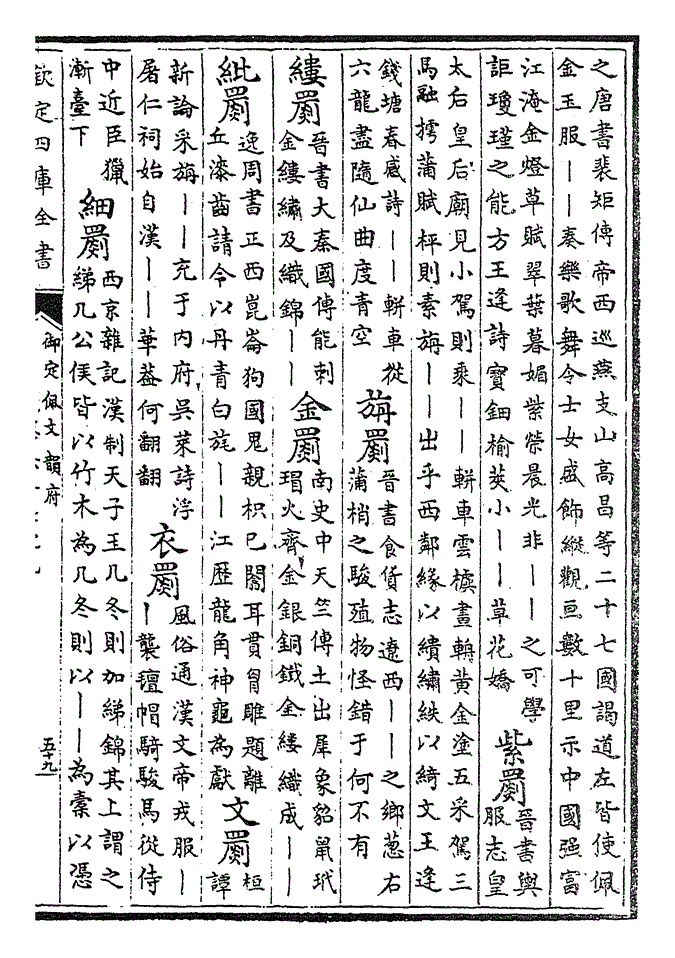 之唐書裴矩傳帝西巡燕支山高昌等二十七國謁道左皆使佩
金玉服——奏樂歌舞令士女盛飾縱觀亘數十里示中國强富
江淹金燈草賦翠葉暮媚紫榮晨光非——之可學
詎瓊瑾之能方王逢詩寶鈿榆莢小——草花嬌
紫罽
晉書輿
服志皇
太后皇后廟見小駕則乘——軿車雲㯭畫輈黃金塗五采駕三
馬融摴蒲賦枰則素旃——出乎西鄰緣以繢繡紩以綺文王逢
錢塘春感詩——軿車從
六龍盡隨仙曲度青空
旃罽
晉書食貨志遼西——之鄉葱右
蒲梢之駿殖物怪錯于何不有
縷罽
晉書大秦國傳能刺
金鏤繡及織錦——
金罽
南史中天竺傳土出犀象貂鼠玳
瑁火齊金銀銅鐵金縷織成——
紕罽
逸周書正西崑崙狗國鬼親枳巳闟耳貫胷雕題離
丘漆齒請令以丹青白旄——江歴龍角神龜為獻
文罽
桓
譚
新論采旃——充于内府吳萊詩浮
屠仁祠始自漢——華葢何翻翻
衣罽
風俗通漢文帝戎服—
—襲氊帽騎駿馬從侍
中近臣獵
漸臺下
細罽
西京雜記漢制天子玉几冬則加綈錦其上謂之
綈几公侯皆以竹木為几冬則以——為橐以憑
欽定四庫全書
御定佩文韻府
五十九